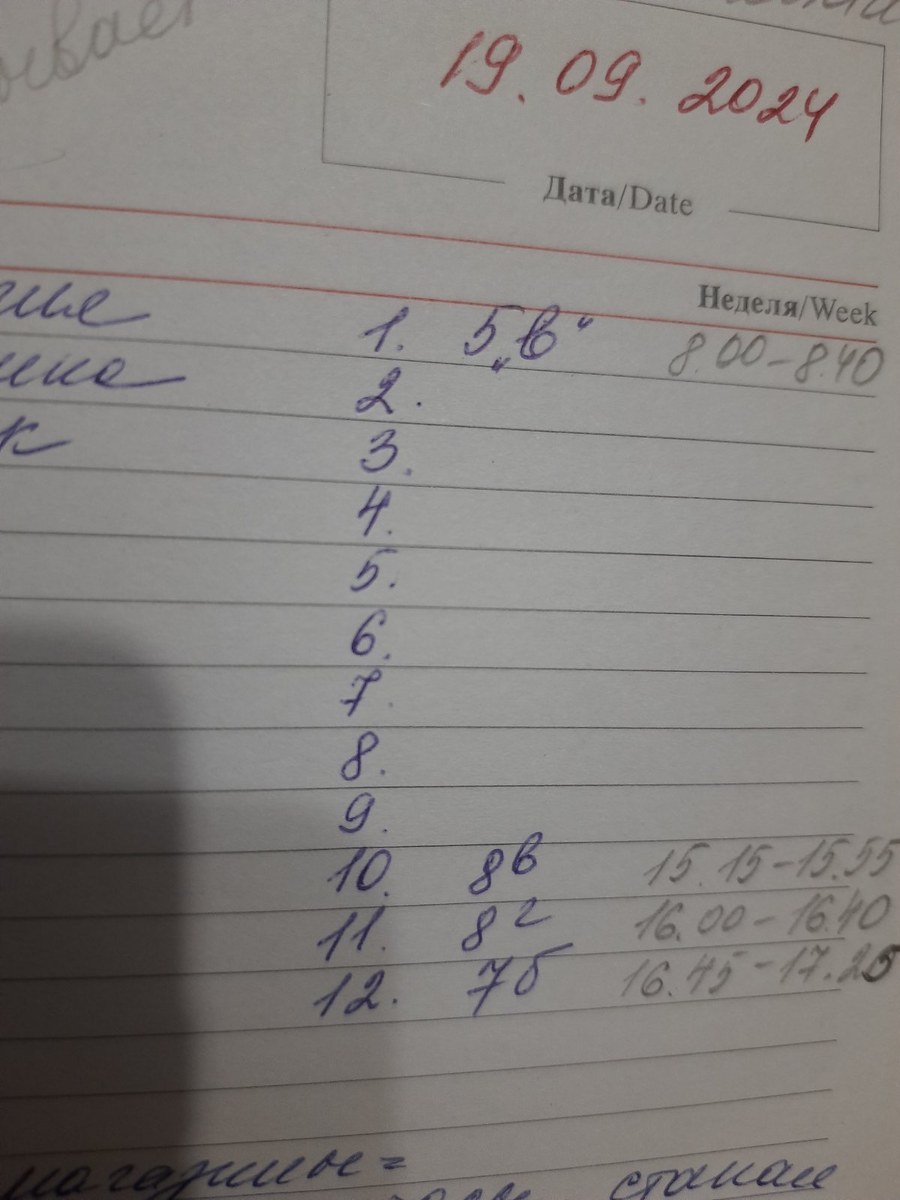 19.09.2024
Дата/Date
Неделя/Week
1. 5 „в“ 8.00-8.40
2.
3.
4.
5.
6.
7.
8.
9.
10. 8в 15.15-15.55
11. 8г 16.00-16.40
12. 7б 16.45-17.25
стакан